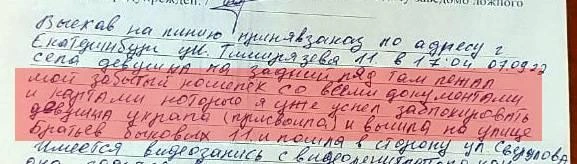 заведомо ложного
Выехав на линию приняв заказ по адресу г
Екатеринбург ул. Тимирязева 11. в 17:04 07.09.22
села девушка на задний ряд там лежал
мой забытый кошелек со всеми документами
и картами которого я уже успел заблокировать
девушка украла (присвоила) и вышла на улице
Братьев Быковых 11 и пошла в сторону ул Свердлова
Имеется видеозапись с видеорегистратора